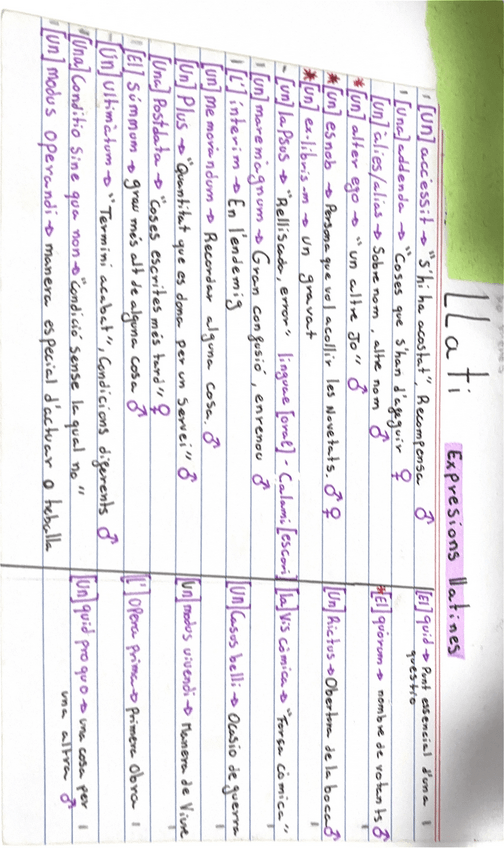 LLatí
Expresions llatines
[Un] accessit → "S'hi ha acostat", Recompensa ♂
[Una] addenda → "Coses que s'han d'afeguir ♀
[Un] àlies/alias → Sobre nom, altre nom ♂
* [un] alter ego → "un altre Jo" ♂
* [un] esnob → Persona que vol acollir les Novetats. ♂ ♀
* [un] ex-libris → un gravat
- [un] lapsus → "Relliscada, error" linguae [oral] - Calami [escori]
[un] maremagnum → Gran confusió, enrenou ♂
[L'] interim → En l'endemig
[un] memorandum → Recordar alguna cosa. ♂
[un] Plus → "Quantitat que es dona per un servei" ♂
[Una] Postdata → "Coses escrites més tard" ♀
[El] Súmmum → grau més alt de alguna cosa ♂
[Un] Ultimàtum → "Termini acabat", Condicions diferents ♂
[Una] Conditio Sine qua non → "condició sense la qual no"
[Un] modus operandi → manera especial d'actuar o treballa
[El] quid → Punt essencial d'una
questio
* [El] quòrum → nombre de votants ♂
[Un] Rictus → Obertura de la boca ♂
[la] Vis còmica → "Força còmica"
[Un] Casus belli → Ocasio de guerra
[Un] modus vivendi → Manera de Viure
[L'] Opera prima → Primera Obra
[Un] quid pro quo → una cosa per
una altra ♂